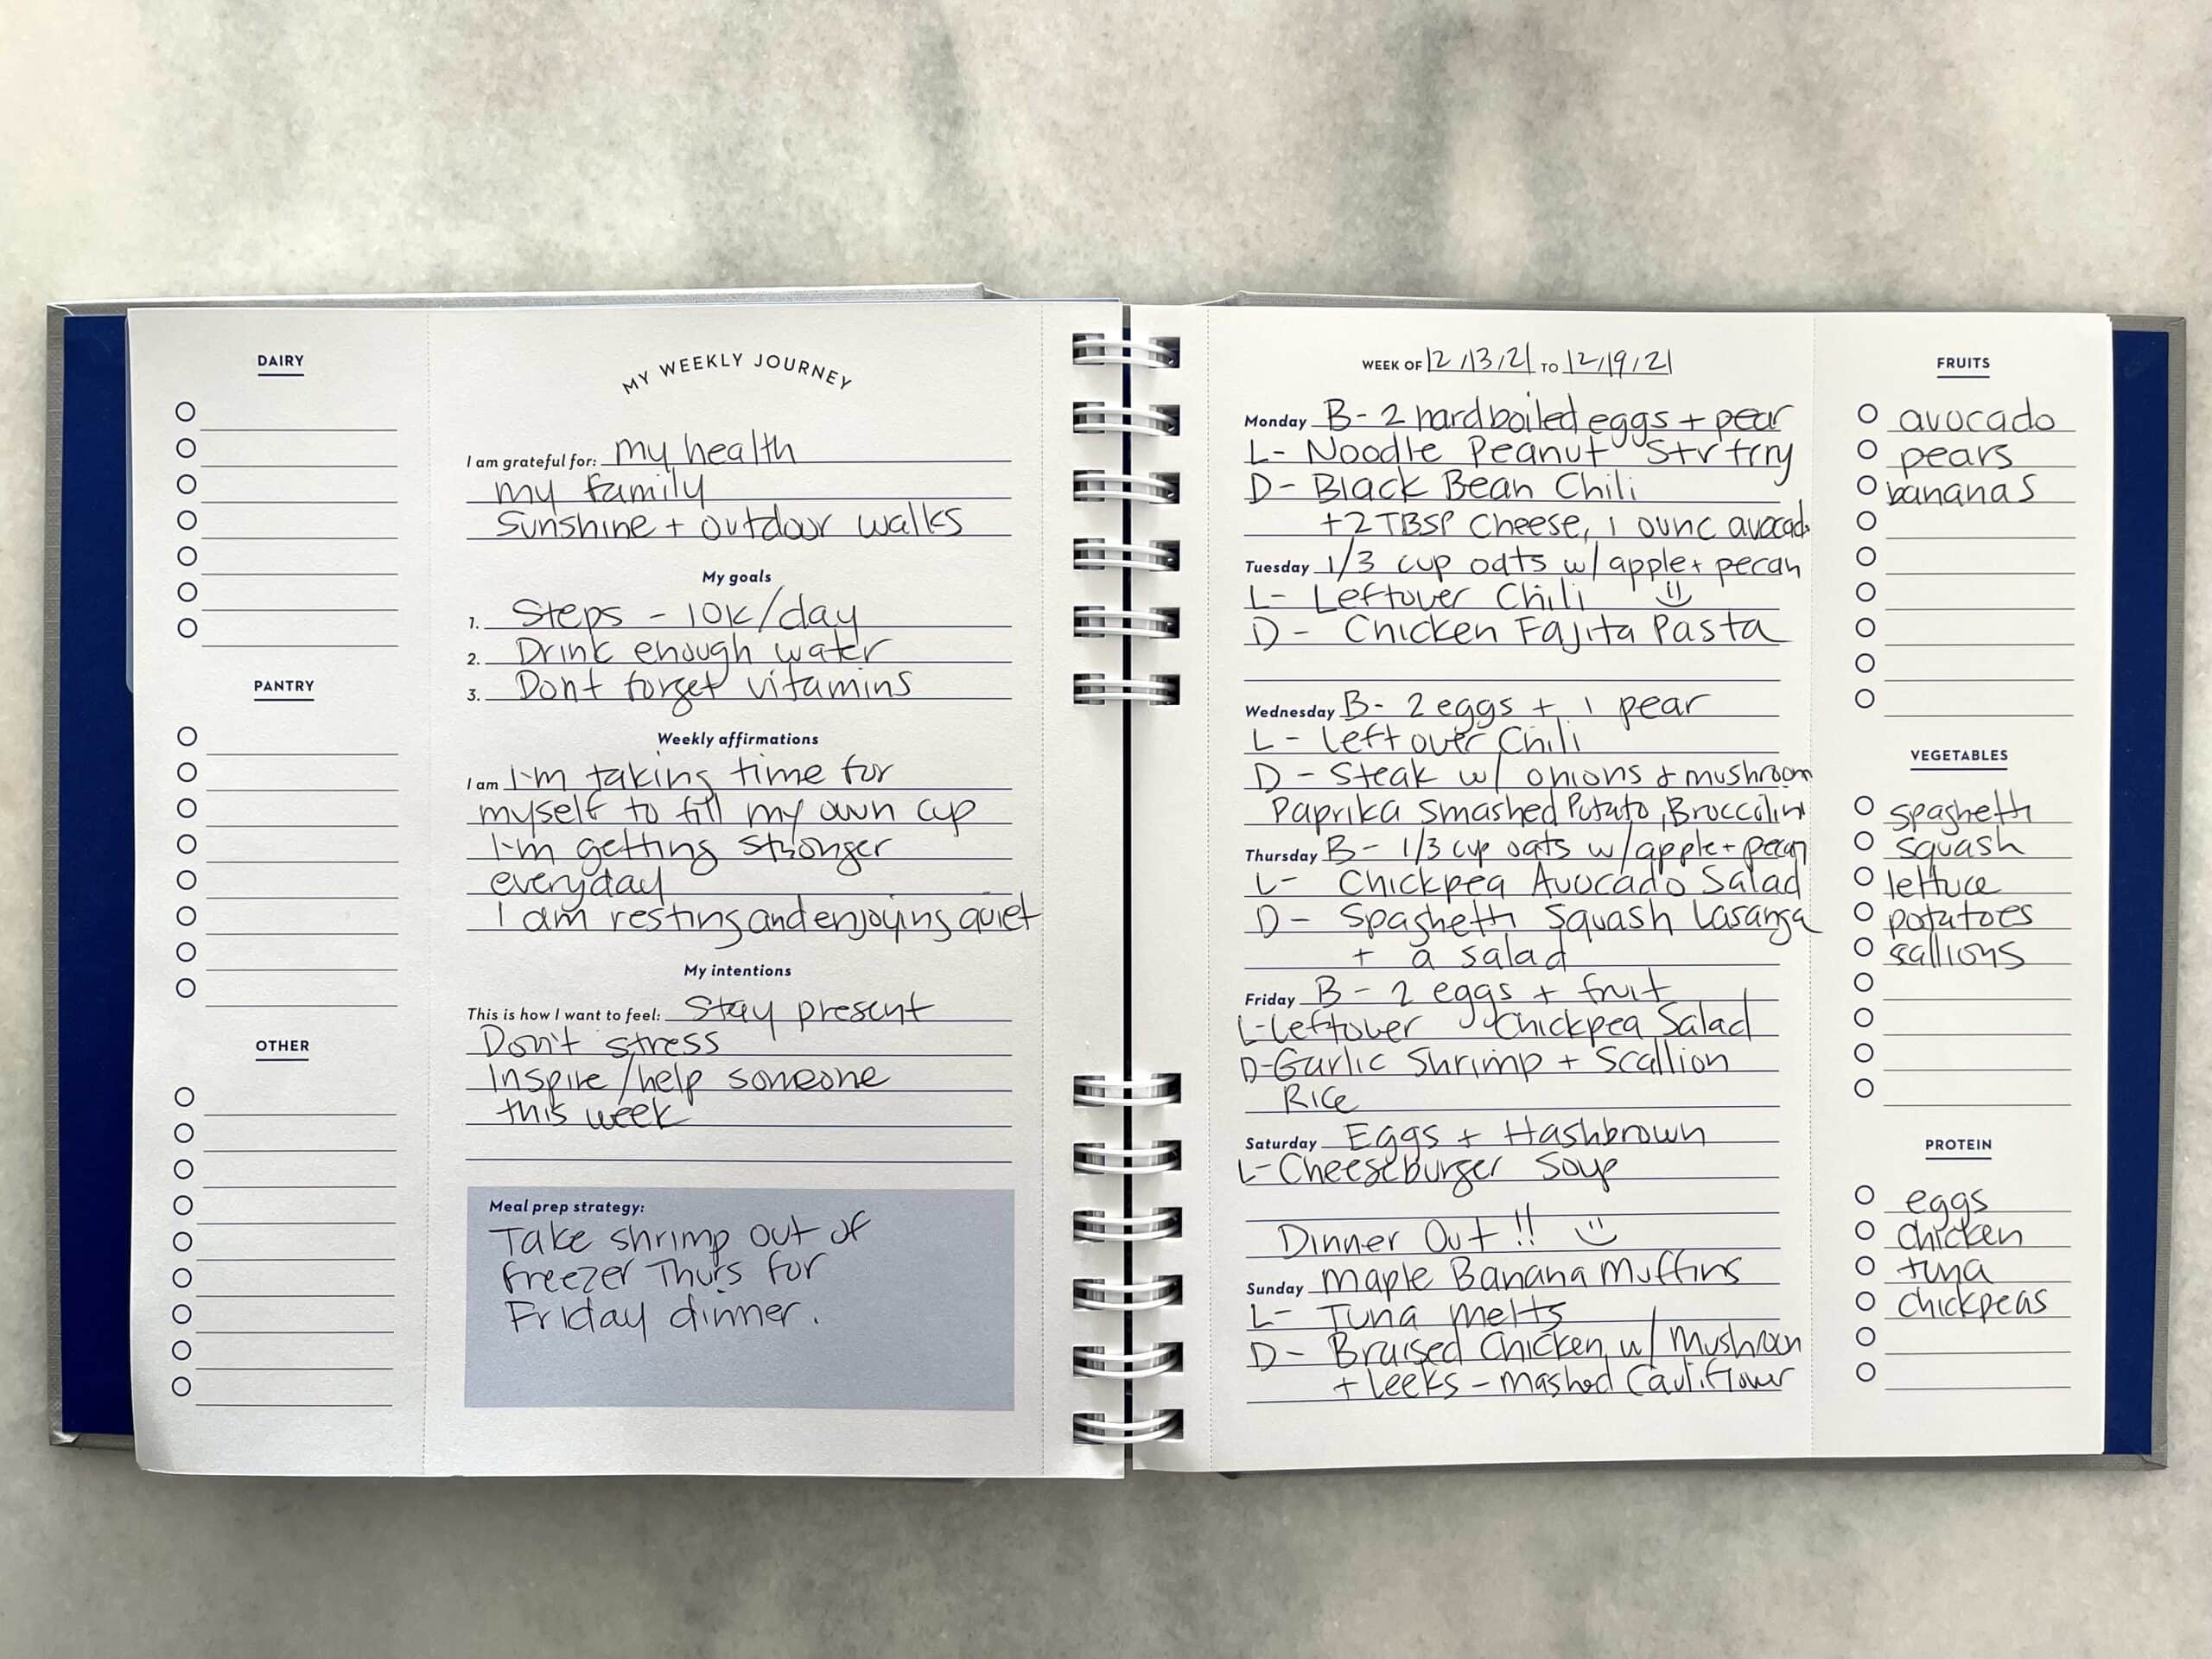 DAIRY
PANTRY
OTHER
MY WEEKLY JOURNEY
I am grateful for: my health
my family
Sunshine + outdoor walks
My goals
1. Steps - 10k/day
2. Drink enough water
3. Dont forget vitamins
Weekly affirmations
I am I'm taking time for
myself to fill my own cup
I'm getting stronger
everyday
I am resting and enjoying quiet
My intentions
This is how I want to feel: Stay present
Don't stress
Inspire/help someone
this week
Meal prep strategy:
Take shrimp out of
freezer Thurs for
Friday dinner.
WEEK OF 12/13/21 TO 12/19/21
Monday B- 2 hardboiled eggs + pear
L- Noodle Peanut Strfrny
D- Black Bean Chili
+2 TBSP Cheese, 1 ounc avocado
Tuesday 1/3 cup oats w/ apple + pecan
L- Leftover Chili
D- Chicken Fajita Pasta
Wednesday B- 2 eggs + 1 pear
L- Leftover Chili
D- Steak w/ onions & mushroom
Paprika Smashed Potato, Broccolini
Thursday B- 1/3 cup oats w/ apple + pecan
L- Chickpea Avocado Salad
D- Spaghetti Squash Lasanga
+ a salad
Friday B- 2 eggs + fruit
L- Leftover Chickpea Salad
D- Garlic Shrimp + Scallion
Rice
Saturday Eggs + Hashbrown
L- Cheeseburger Soup
Dinner Out!!
Sunday Maple Banana Muffins
L- Tuna Melts
D- Braised Chicken w/ Mushroom
+ Leeks - mashed Cauliflower
FRUITS
avocado
pears
bananas
VEGETABLES
spaghetti
squash
lettuce
potatoes
sallions
PROTEIN
eggs
chicken
tuna
chickpeas